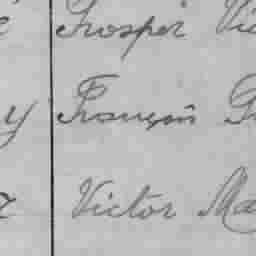 Prosper Vic
y François G
z Victor Ma